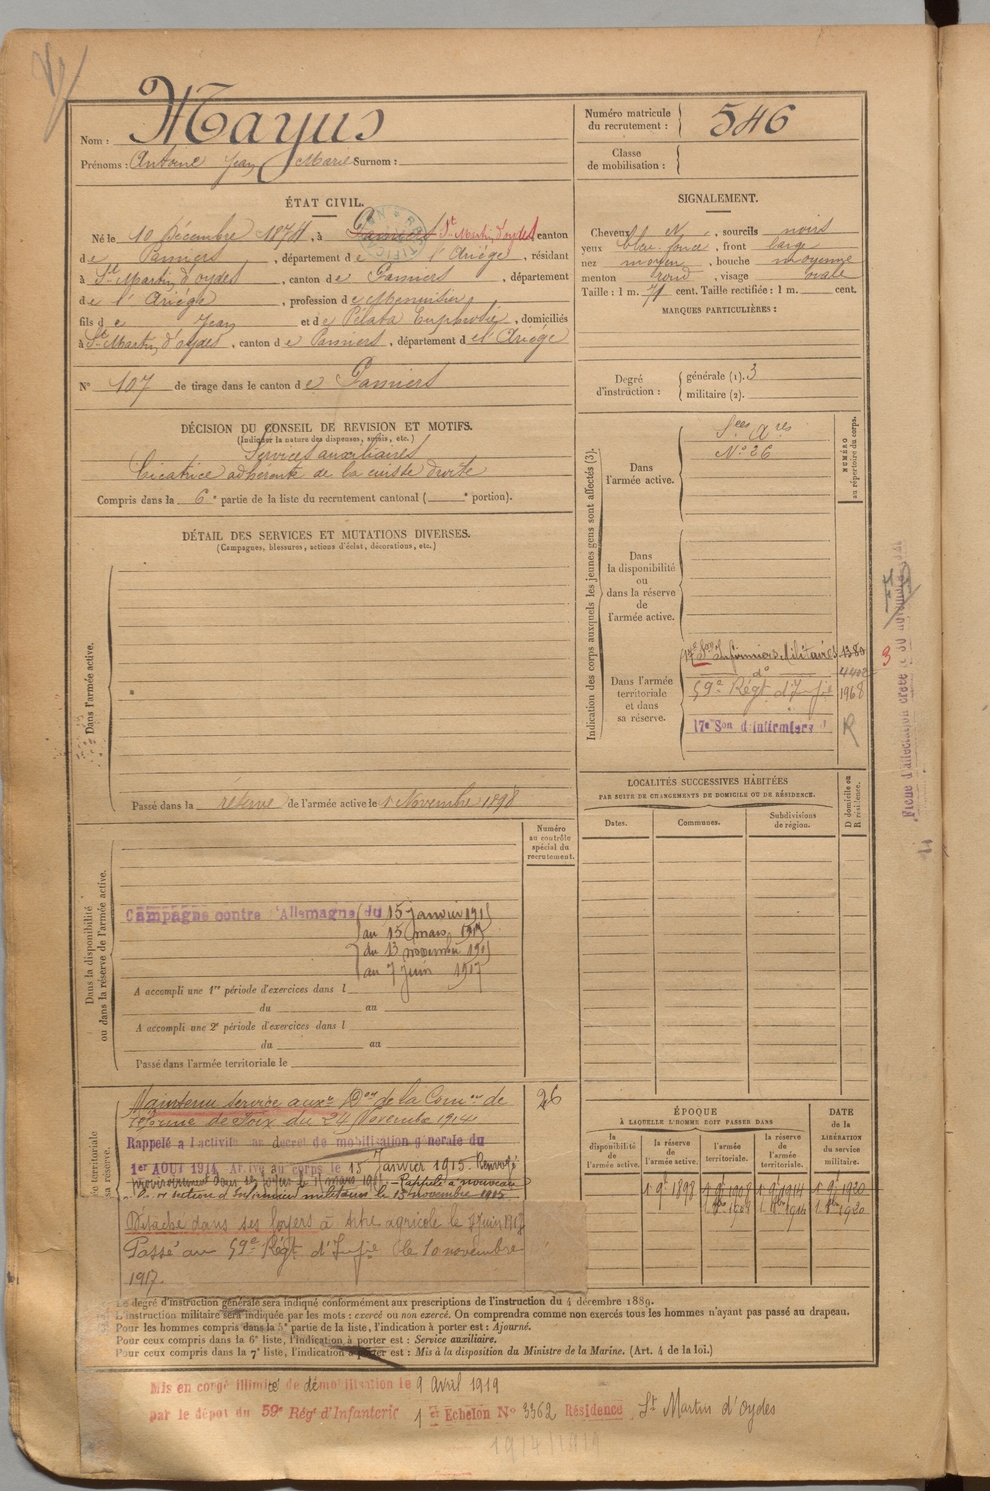 Nom : Mayus
Prénoms : Antoine Jean Marie Surnom :
Numéro matricule du recrutement : 546
Classe de mobilisation :
ÉTAT CIVIL.
Né le 10 Décembre 1874, à Pamiers St Martin d'oydes canton
de Pamiers, département de l'Ariége, résidant
à St Martin d'oydes, canton de Pamiers, département
de l'Ariége, profession de Menuisier
fils de Jean et de Pélata Euphrosie, domiciliés
à St Martin d'oydes, canton de Pamiers, département de l'Ariége
N° 107 de tirage dans le canton de Pamiers
SIGNALEMENT.
Cheveux N., sourcils noirs
yeux bleu foncé, front large
nez moyen, bouche moyenne
menton rond, visage ovale
Taille : 1 m. 71 cent. Taille rectifiée : 1 m. cent.
MARQUES PARTICULIÈRES :
Degré d'instruction : générale (1). 3
militaire (2).
DÉCISION DU CONSEIL DE REVISION ET MOTIFS.
(Indiquer la nature des dispenses, sursis, etc.)
Services auxiliaires
Cicatrice adhérente de la cuisse droite
Compris dans la 6e partie de la liste du recrutement cantonal ( e portion).
DÉTAIL DES SERVICES ET MUTATIONS DIVERSES.
(Campagnes, blessures, actions d'éclat, décorations, etc.)
Dans l'armée active.
Passé dans la réserve de l'armée active le 1 Novembre 1898
Indication des corps auxquels les jeunes gens sont affectés (3).
NUMÉRO au répertoire du corps.
Dans l'armée active.
Sces Ares
N° 26
Dans la disponibilité ou dans la réserve de l'armée active.
Dans l'armée territoriale et dans sa réserve.
17e Son Infirmiers Militaires 1380
do
59e Régt d'Infie 1968
17e Son d'infirmiers R
3
Fiche d'affectation créée le 30 novembre
LOCALITÉS SUCCESSIVES HABITÉES
PAR SUITE DE CHANGEMENTS DE DOMICILE OU DE RÉSIDENCE.
Dates.
Communes.
Subdivisions de région.
D domicile ou R résidence.
Numéro au contrôle spécial du recrutement.
Dans la disponibilité ou dans la réserve de l'armée active.
Campagne contre l'Allemagne du 15 janvier 1915
au 15 mars 1915
du 13 novembre 1915
au 7 juin 1917
A accompli une 1re période d'exercices dans l
du au
A accompli une 2e période d'exercices dans l
du au
Passé dans l'armée territoriale le
Maintenu service auxre Don de la Comon de
réforme de Foix du 24 Novembre 1914
26
Rappelé à l'activité au decret de mobilisation générale du
1er AOUT 1914 Arrivé au corps le 15 Janvier 1915. Renvoyé
provisoirement dans ses foyers le 15 mars 1915 - Rappelé à nouveau
section d'Infirmiers militaires le 13 novembre 1915
Détaché dans ses foyers à titre agricole le 7 juin 1917
Passé au 59e Régt d'Infie le 10 novembre
1917.
ÉPOQUE
À LAQUELLE L'HOMME DOIT PASSER DANS
la disponibilité de l'armée active.
la réserve de l'armée active.
l'armée territoriale.
la réserve de l'armée territoriale.
DATE de la LIBÉRATION du service militaire.
Le degré d'instruction générale sera indiqué conformément aux prescriptions de l'instruction du 4 décembre 1889.
L'instruction militaire sera indiquée par les mots : exercé ou non exercé. On comprendra comme non exercés tous les hommes n'ayant pas passé au drapeau.
Pour les hommes compris dans la 5e partie de la liste, l'indication à porter est : Ajourné.
Pour ceux compris dans la 6e liste, l'indication à porter est : Service auxiliaire.
Pour ceux compris dans la 7e liste, l'indication à porter est : Mis à la disposition du Ministre de la Marine. (Art. 4 de la loi.)
Mis en congé illimité de démobilisation le 9 Avril 1919
par le dépôt du 59e Régt d'Infanterie 1er Echelon N° 3362 Résidence St Martin d'Oydes